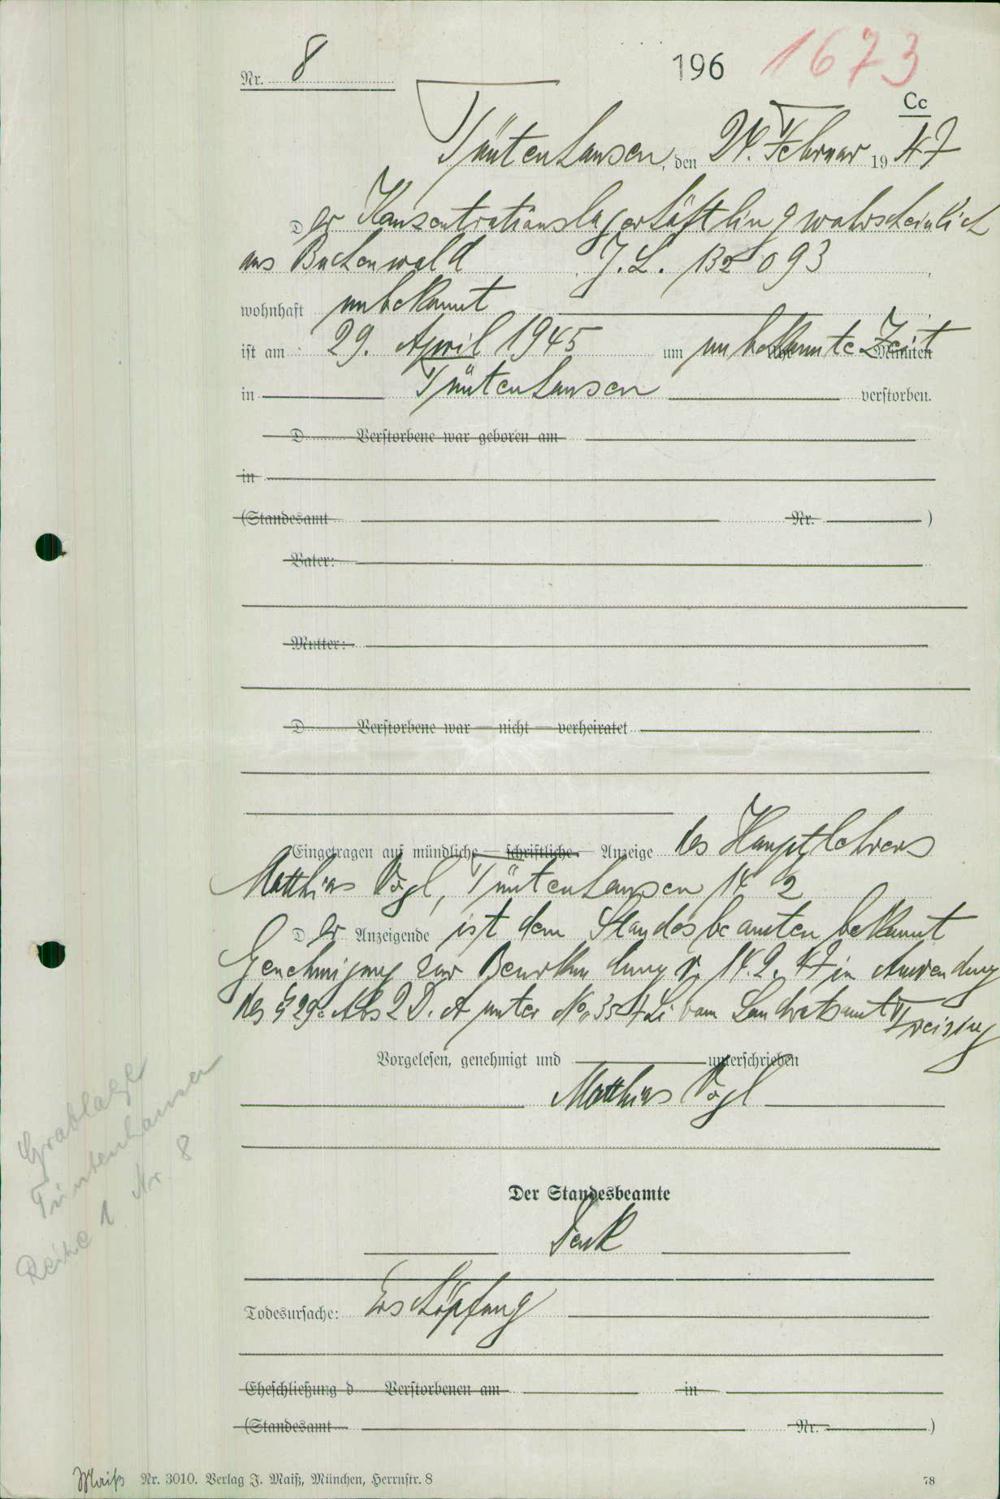 Nr. 8
196 1673
Cc
Tüntenhausen, den 24. Februar 1947
Der Konzentrationslagerhäftling wahrscheinlich
aus Buchenwald J.L. B2093
wohnhaft unbekannt
ist am 29. April 1945 um unbekannte Zeit Minuten
in Tüntenhausen verstorben.
D Verstorbene war geboren am
in
(Standesamt Nr. )
Vater:
Mutter:
D Verstorbene war nicht verheiratet
Eingetragen auf mündliche schriftliche Anzeige des Hauptlehrers
Matthias Vogl, Tüntenhausen N 2
Der Anzeigende ist dem Standesbeamten bekannt
Genehmigung zur Beurkundung v. 14.2.47 in Anwendung
des § 29 Abs 2 D. A unter No. vom Landratsamt Freising
Vorgelesen, genehmigt und unterschrieben
Matthias Vogl
Der Standesbeamte
Todesursache: Erschöpfung
Eheschließung d Verstorbenen am in
(Standesamt Nr. )
Grablage
Tüntenhausen
Reihe 1 Nr. 8
Maiß Nr. 3010. Verlag J. Maiß, München, Herrnstr. 8
78